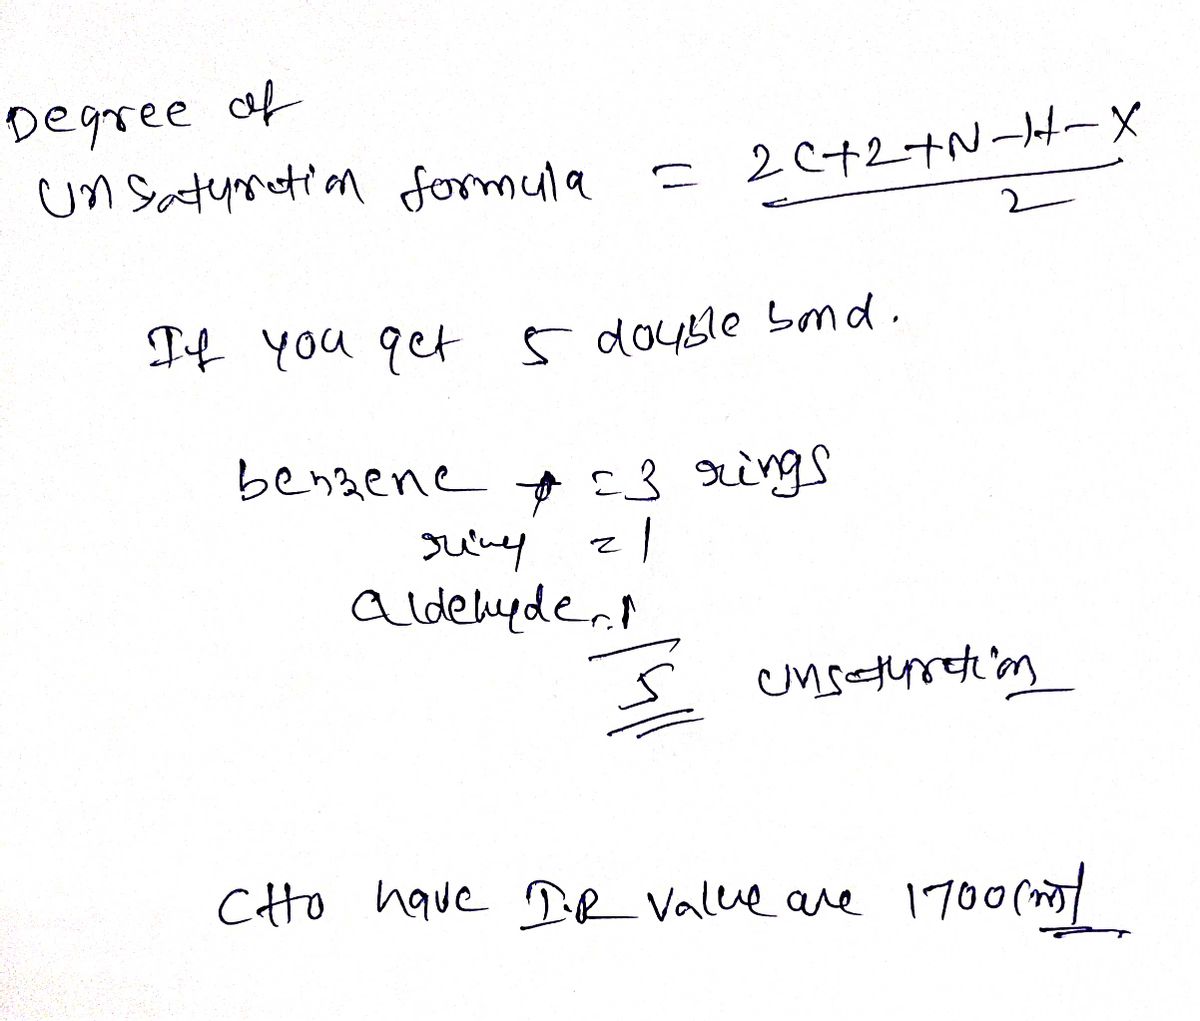 Degree of
Unsaturation formula = 2C+2+N-H-X / 2
If you get 5 double bond.
benzene = 3 rings
ring = 1
aldehyde = 1
5 unsaturation
CHO have I.R value are 1700 cm-1